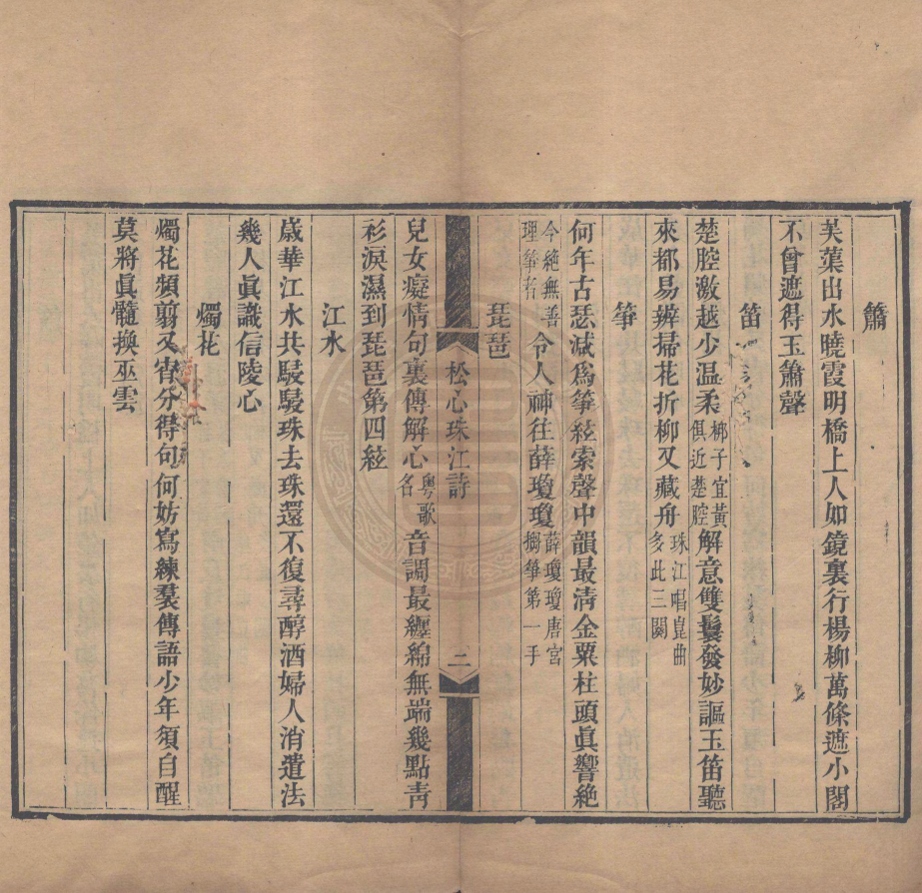 簫
芙蕖出水曉霞明橋上人如鏡裏行楊柳萬條遮小閣
不曾遮得玉簫聲
笛
楚腔激越少温柔梆子宜黃俱近楚腔解意雙鬟發妙謳玉笛聽
來都易辨掃花折柳又藏舟珠江唱崑曲多此三闋
箏
何年古瑟減爲箏絃索聲中韻最淸金粟柱頭眞響絶
今絶無善理箏者令人神往薛瓊瓊薛瓊瓊唐宮搊箏第一手
琵琶
兒女癡情句裏傳解心粵歌名音調最纏綿無端幾點靑
衫淚濕到琵琶第四絃
江水
歳華江水共駸駸珠去珠還不復尋醇酒婦人消遣法
幾人眞識信陵心
燭花
燭花頻翦又宵分得句何妨寫練羣傳語少年須自醒
莫將眞髓換巫雲
松心珠江詩
二